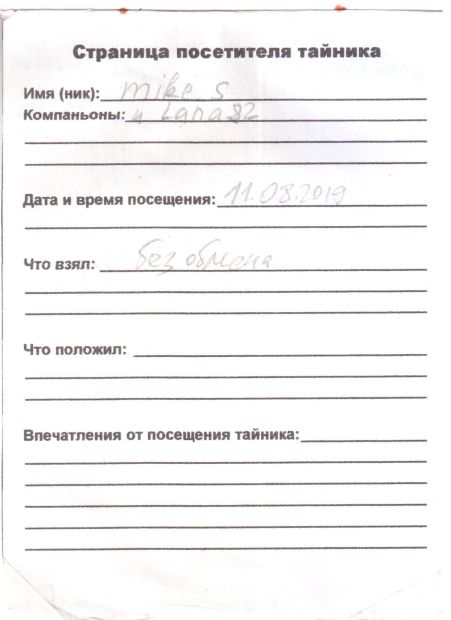 Страница посетителя тайника
Имя (ник): mike s
Компаньоны: и Lana82
Дата и время посещения: 11.08.2019
Что взял: без обмена
Что положил:
Впечатления от посещения тайника: